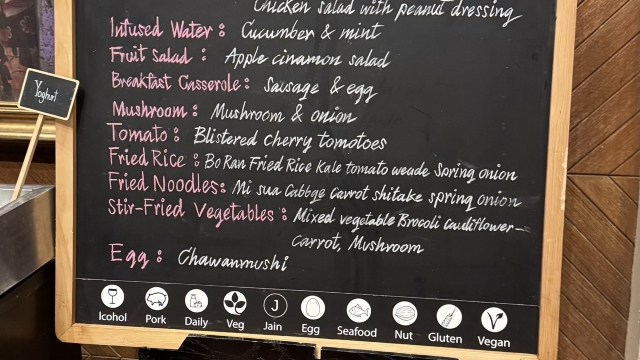 Chicken salad with peanut dressing
Infused Water : Cucumber & mint
Fruit Salad : Apple cinamon salad
Breakfast Casserole : Sausage & egg
Mushroom : Mushroom & onion
Tomato : Blistered cherry tomotoes
Fried Rice : Bo Ran Fried Rice Kale tomato weade Spring onion
Fried Noodles : Mi sua Cabbge Carrot shitake spring onion
Stir-Fried Vegetables : Mixed vegetable Brocoli Caudiflower-
Carrot, Mushroom
Egg : Chawanmushi
Yoghurt
J
Icohol Pork Daily Veg Jain Egg Seafood Nut Gluten Vegan